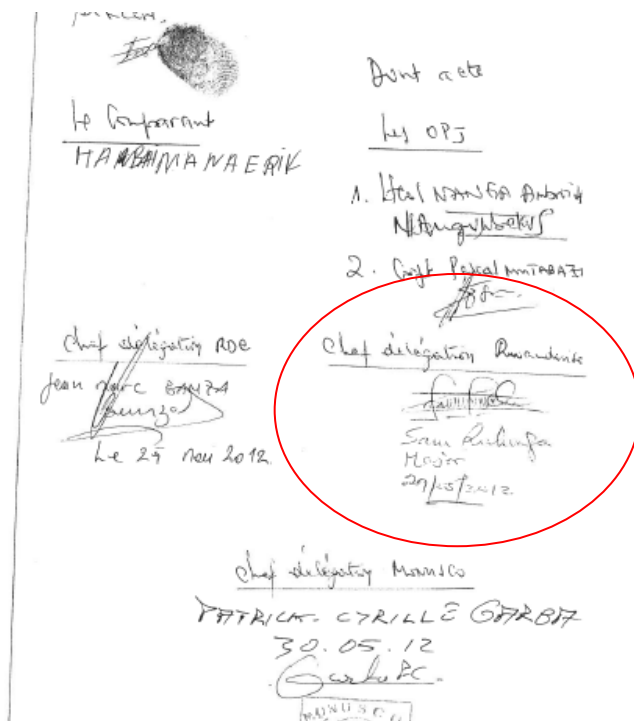 Dont acte
Le Comparant
HAABAIMANA ERIK
Les OPJ
1. Ltcol NANGA
2. Capt Pascal MUTABAZI
Chef délégation RDC
Jean Marc BANZA
Le 29 mai 2012
Chef délégation Rwandaise
Sam
Major
29/05/2012
Chef délégation Monusco
PATRICK-CYRILLE GARBA
30.05.12
MONUSCO